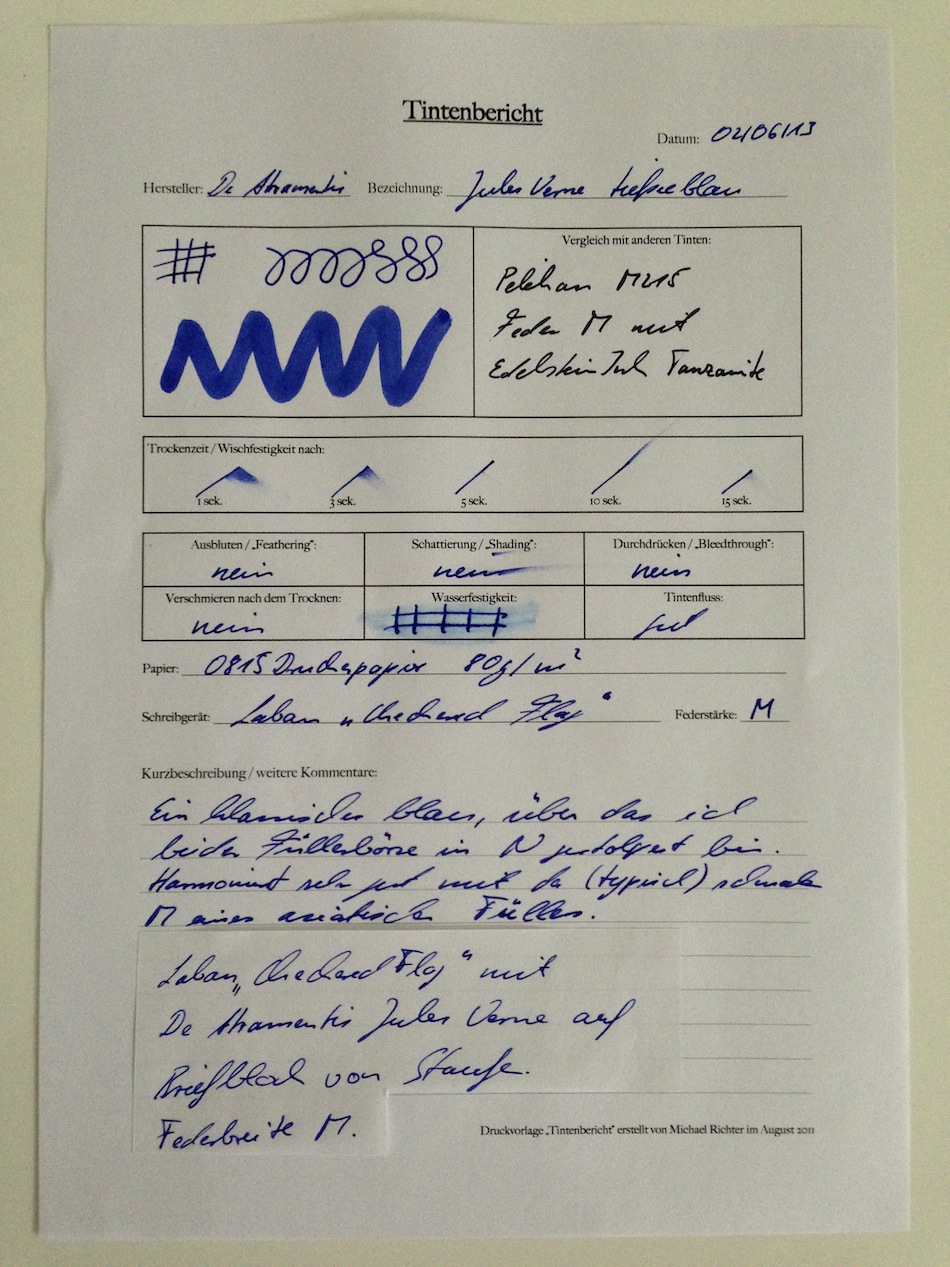 Tintenbericht
Datum: 02/06/13
Hersteller: De Atramentis Bezeichnung: Jules Verne tiefseeblau
Vergleich mit anderen Tinten:
Pelikan M215
Feder M mit
Edelstein Ink Tanzanite
Trockenzeit / Wischfestigkeit nach:
1 sek. 3 sek. 5 sek. 10 sek. 15 sek.
Ausbluten / „Feathering“: Schattierung / „Shading“: Durchdrücken / „Bleedthrough“:
nein nein nein
Verschmieren nach dem Trocknen: Wasserfestigkeit: Tintenfluss:
nein gut
Papier: 0815 Druckerpapier 80g/m²
Schreibgerät: Laban „Checkered Flag“ Federstärke: M
Kurzbeschreibung / weitere Kommentare:
Ein klassisches blau, über das ich
bei der Füllerbörse in N gestolpert bin.
Harmoniert sehr gut mit der (typisch) schmalen
M eines asiatischen Füllers.
Laban „Checkered Flag“ mit
De Atramentis Jules Verne auf
Briefblock von Staufen.
Federbreite M.
Druckvorlage „Tintenbericht“ erstellt von Michael Richter im August 2011